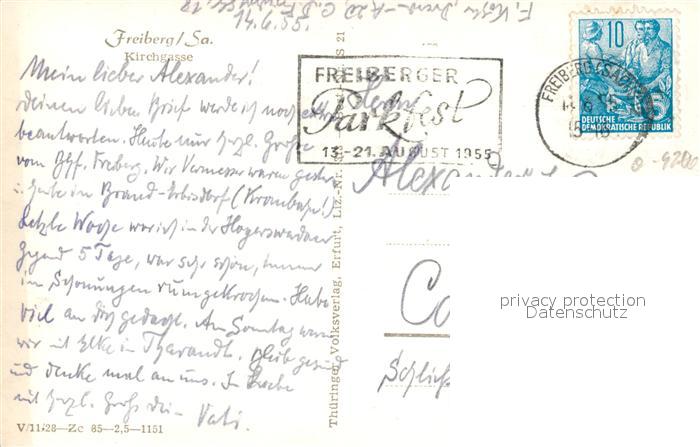 14.6.55.
Freiberg/Sa.
Kirchgasse
Mein lieber Alexander!
Deinen lieben Brief werde ich noch extra
beantworten. Heute nur herzl. Grüße
vom Bhf. Freiberg. Wir Vermesser waren gestern
u. heute in Brand-Erbisdorf (Kranbahn!).
Letzte Woche war ich in der Hoyerswerdaer
Gegend 5 Tage, war sehr schön, immer
in Schonungen rumgekrochen. Habe
viel an Dich gedacht. Am Sonntag waren
wir mit Elke in Tharandt. Bleib gesund
und denke mal an uns. In Liebe
mit herzl. Gruß Dein Vati.
V/11/28—Zc 85—2,5—1151
Thüringer Volksverlag, Erfurt, Liz.-Nr.
S 21
FREIBERGER
Parkfest
13.-21. AUGUST 1955
10
DEUTSCHE
DEMOKRATISCHE REPUBLIK
FREIBERG (SACHS)
Herrn
Alexander
Co
Schließ
0-9200
privacy protection
Datenschutz